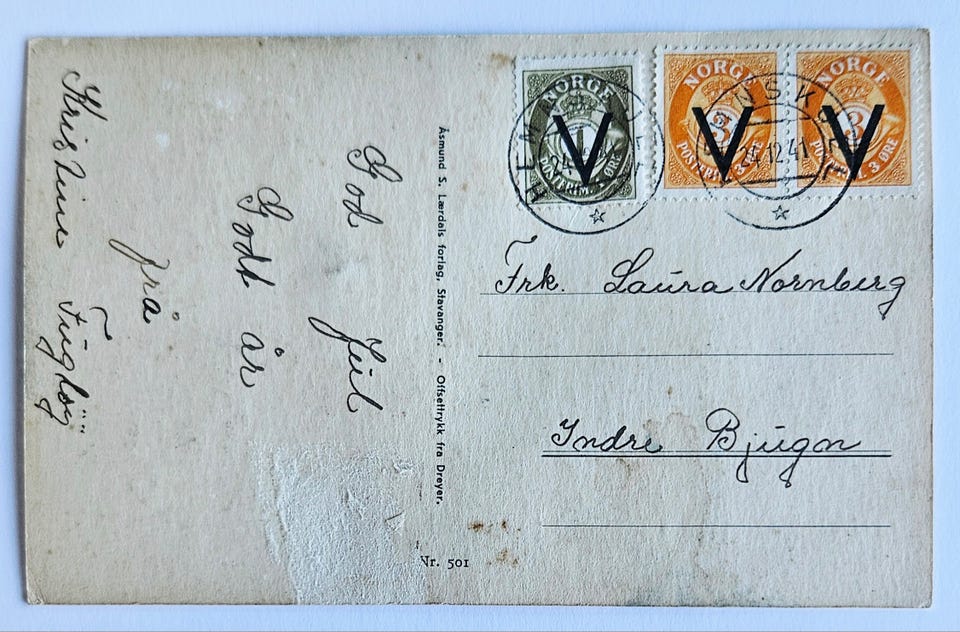 NORGE
V
1
POSTFRIM. 1 ØRE
NORGE
V
3
POSTFRIM. 3 ØRE
NORGE
V
3
POSTFRIM. 3 ØRE
24.12.41
Frk. Laura Nornberg
Indre Bjugn
Åsmund S. Lærdals forlag, Stavanger. - Offsettrykk fra Dreyer.
Nr. 501
God Jul
Godt år
frå
Kristine Fuglöy